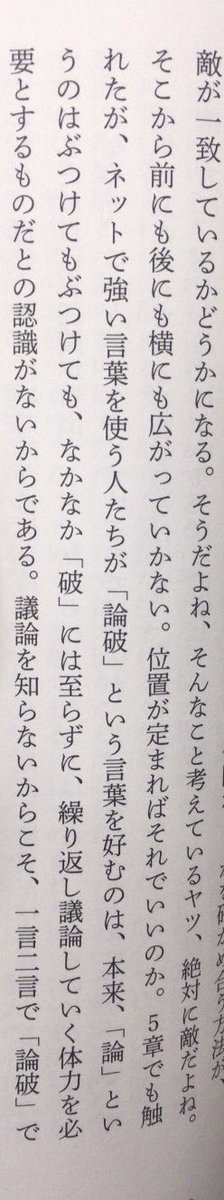 敵が一致しているかどうかになる。そうだよね、そんなこと考えているヤツ、絶対に敵だよね。
そこから前にも後にも横にも広がっていかない。位置が定まればそれでいいのか。5章でも触
れたが、ネットで強い言葉を使う人たちが「論破」という言葉を好むのは、本来、「論」とい
うのはぶつけてもぶつけても、なかなか「破」には至らずに、繰り返し議論していく体力を必
要とするものだとの認識がないからである。議論を知らないからこそ、一言二言で「論破」で